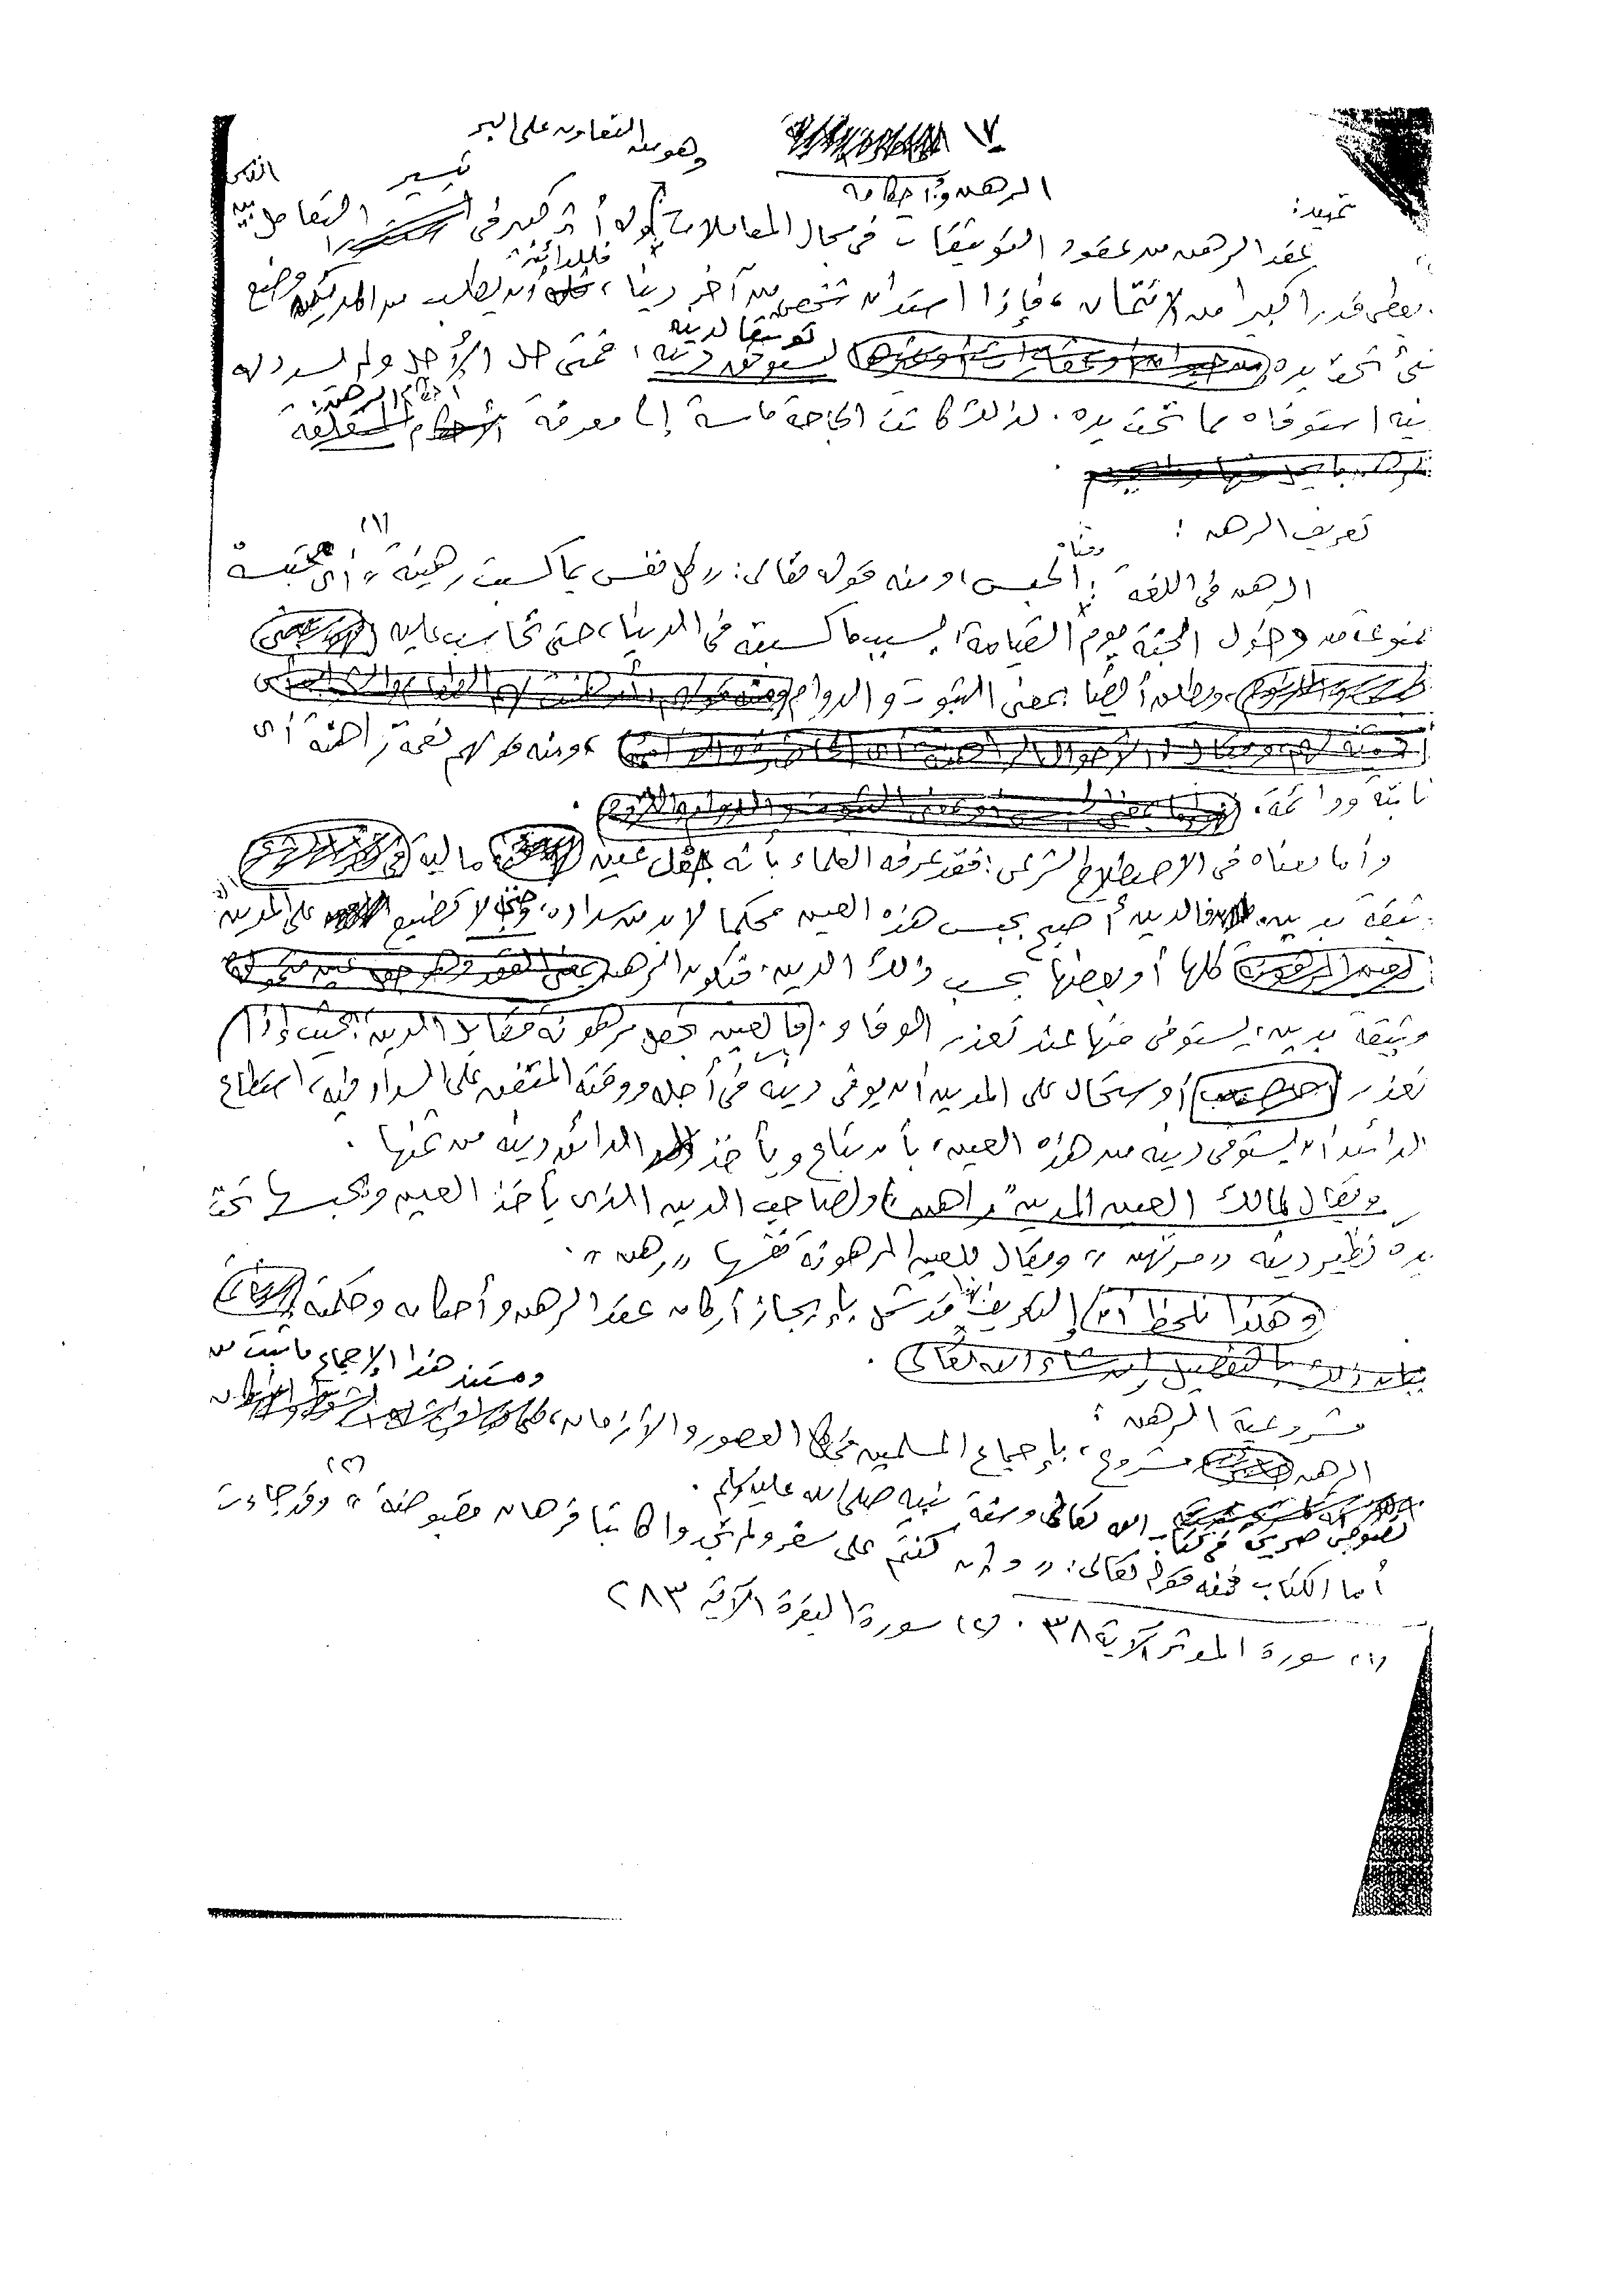 ٧
وهو من التعاون على البر
الرهن وأحكامه
تمهيد:
عقد الرهن من عقود التوثيقات في مجال المعاملات وله أثر كبير في تيسير التعامل بين
يعطى قدرا كبيرا من الائتمان، فإذا استدان شخص من آخر دينا، فللدائن أن يطلب من المدين وضع
شئ تحت يده توثيقا لدينه، فمتى حل الأجل ولم يسدد له
دينه استوفاه مما تحت يده. لذلك كانت الحاجة ماسة إلى معرفة أحكام الرهن.
تعريف الرهن:
الرهن في اللغة: معناه الحبس، ومنه قوله تعالى: "كل نفس بما كسبت رهينة" (١) أى محتبسة
ممنوعة من دخول الجنة يوم القيامة، بسبب ما كسبته في الدنيا، حتى تحاسب عليه
ويطلق أيضا بمعنى الثبوت والدوام
، ومنه قولهم نعمة راهنة أى
ثابتة ودائمة.
وأما معناه في الاصطلاح الشرعى: فقد عرفه العلماء بأنه جعل عين مالية
وثيقة بدين، فالدين أصبح بحبس هذه العين محكما لابد من سداده، حتى لا تضيع على المدين
كلها أو بعضها بحسب ذلك الدين، فتكون الرهن
وثيقة بدين، يستوفى منها عند تعذر الوفاء. فالعين تجعل مرهونة مقابل الدين، بحيث إذا
تعذر أو استحال على المدين أن يوفى دينه في أجله ووقته المتفق على السداد فيه، استطاع
الدائن أن يستوفى دينه من هذه العين، بأن تباع ويأخذ الدائن دينه من ثمنها.
ويقال لمالك العين المدين "راهن" ولصاحب الدين الذى يأخذ العين ويحبسها تحت
يده نظير دينه "مرتهن" ويقال للعين المرهونة نفسها "رهن".
وهكذا نلحظ أن التعريف قد شمل بإيجاز أركان عقد الرهن وأحكامه وحكمته
بيان ذلك بالتفصيل إن شاء الله تعالى.
مشروعية الرهن:
الرهن مشروع، بإجماع المسلمين في كل العصور والأزمان، ومستند هذا الإجماع ما ثبت من
نصوص صريحة في كتاب الله تعالى وسنة نبيه صلى الله عليه وسلم.
أما الكتاب فمنه قوله تعالى: "وإن كنتم على سفر ولم تجدوا كاتبا فرهان مقبوضة" (٢) وقد جاءت
(١) سورة المدثر الآية ٣٨. (٢) سورة البقرة الآية ٢٨٣